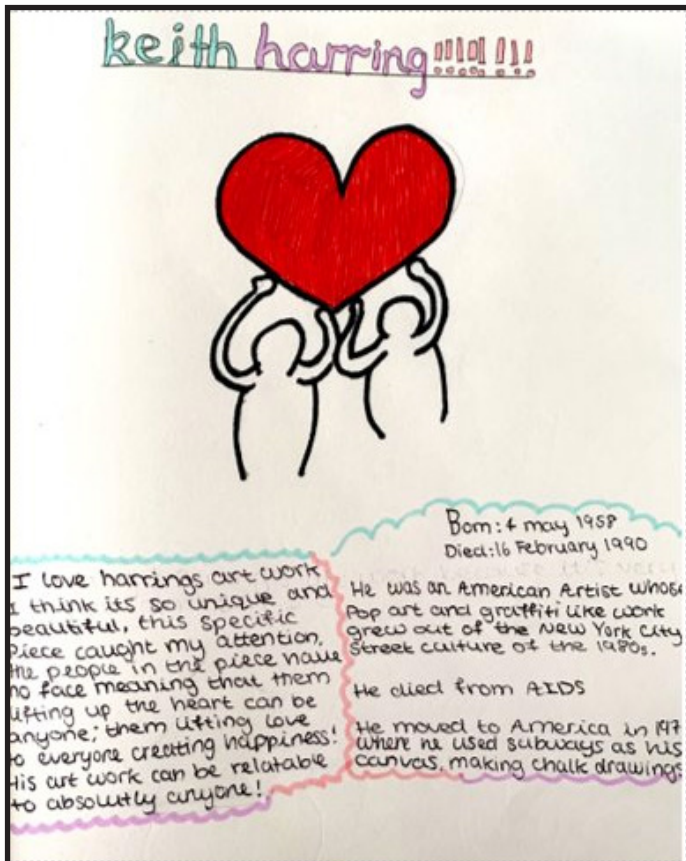 keith harring!!!!!!!
I love harrings art work
I think its so unique and
beautiful, this specific
Piece caught my attention,
the people in the piece have
no face meaning that them
lifting up the heart can be
anyone; them lifting love
to everyone creating happiness!
His art work can be relatable
to absolutly anyone!
Born: 4 may 1958
Died: 16 February 1990
He was an American Artist whose
Pop art and graffiti like work
grew out of the New York City
Street culture of the 1980s.
He died from AIDS
He moved to America in 197
where he used subways as his
canvas, making chalk drawings